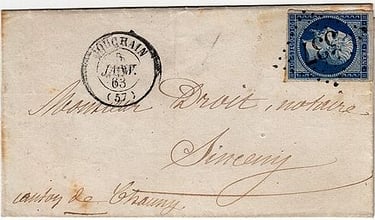 BOUCHAIN
8
JANV.
63
(57)
Monsieur Droit, notaire
Sinceny
canton de Chauny